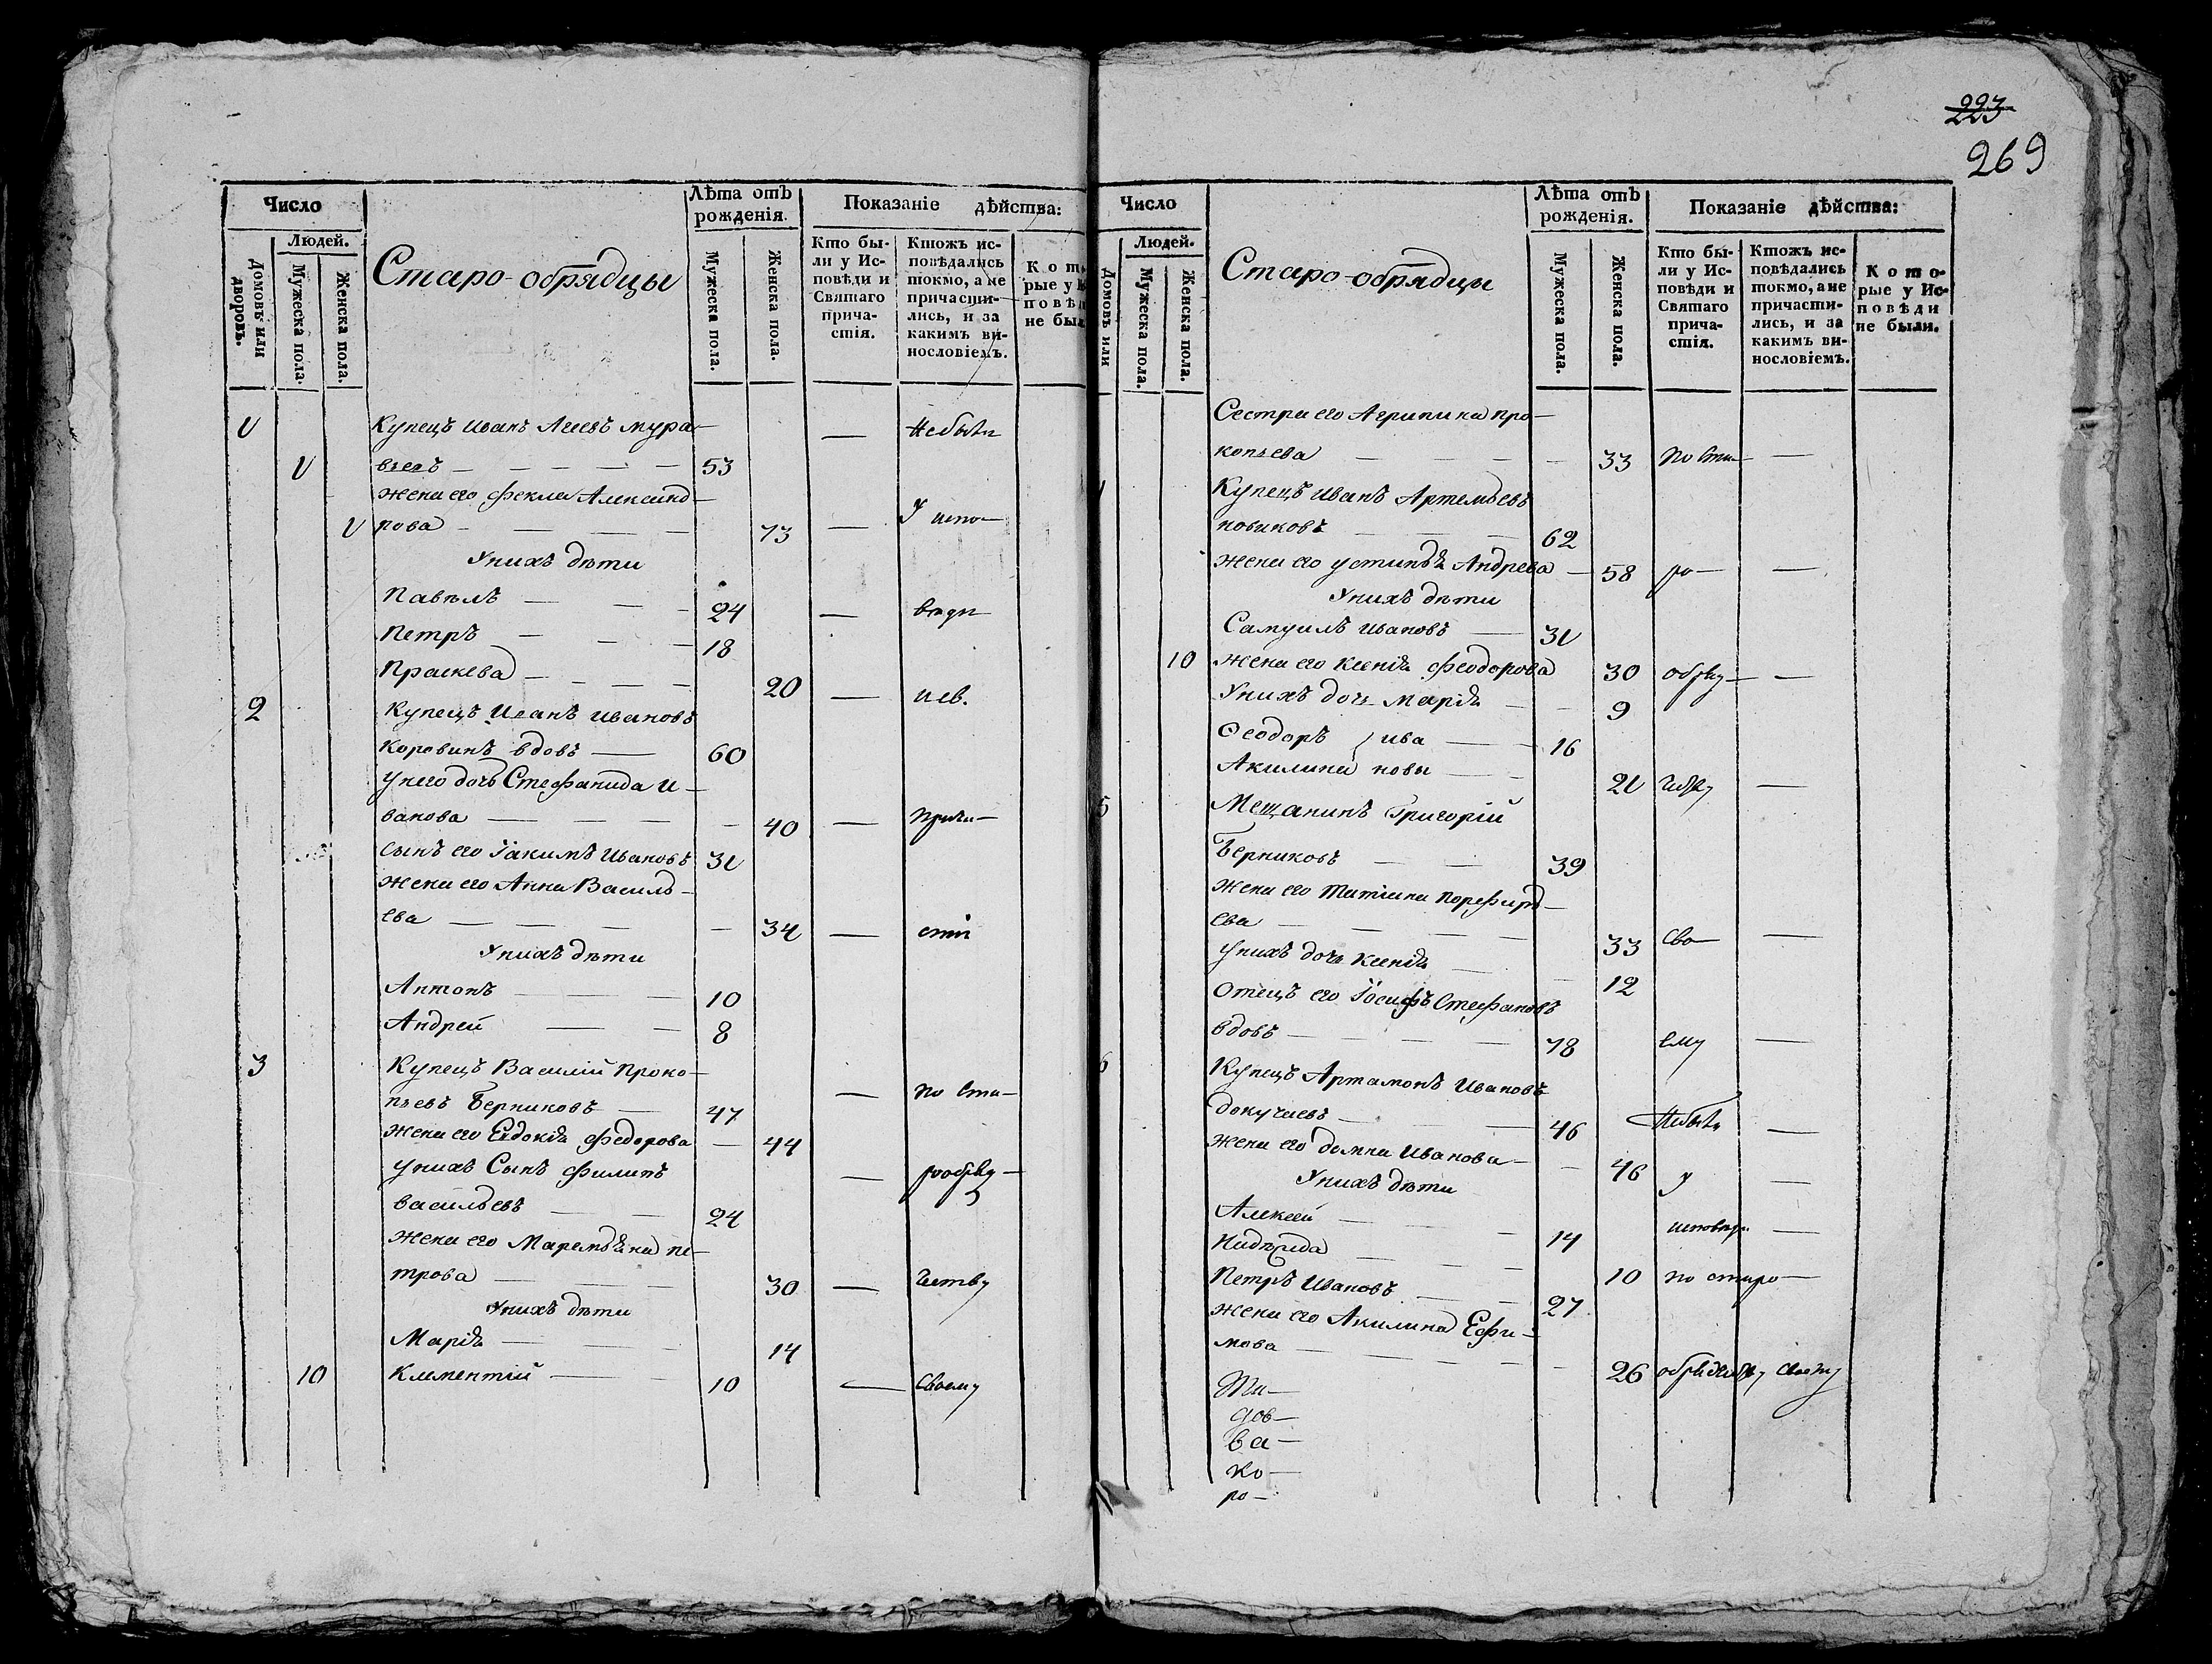 223
269
Число
Людей.
Домовъ или дворовъ.
Мужеска пола.
Женска пола.
Старо-обрядцы
Лѣта отъ рожденія.
Мужеска пола.
Женска пола.
Показаніе дѣйства:
Кто бы-
ли у Ис-
повѣди и
Святаго
прича-
стія.
Ктожъ ис-
повѣдались
токмо, а не
причасти-
лись, и за
какимъ ви-
нословіемъ.
Кото
рые у И
повѣд
не был
Купецъ Иванъ мура-
Небыли
вьевъ 53
жена его Фекла Александ-
рова 73
У испо-
Унихъ дѣти
Павелъ 24
вѣди
Петръ 18
Праскева 20
и св.
2 Купецъ Иванъ Ивановъ
Коровинъ вдовъ 60
унего дочь Стефанида И-
ванова 40 прича-
сынъ его Іакимъ Ивановъ 31
жена его Анна Василь-
ева 34 стія
Унихъ дѣти
Антонъ 10
Андрей 8
3 Купецъ Василій Проко-
пьевъ Берниковъ 47 по ста-
жена его Евдокія Федорова 44
унихъ Сынъ Филипъ рообряд-
васильевъ 24
жена его Маремьяна пе-
трова 30 честву
Унихъ дѣти
Марія 14
10 Клементій 10 своему
Число
Людей.
Домовъ или
Мужеска пола.
Женска пола.
Старо-обрядцы
Лѣта отъ рожденія.
Мужеска пола.
Женска пола.
Показаніе дѣйства:
Кто бы-
ли у Ис-
повѣди и
Святаго
прича-
стія.
Ктожъ ис-
повѣдались
токмо, а не
причасти-
лись, и за
какимъ ви-
нословіемъ.
Кото-
рые у Ис-
повѣди
не были.
Сестра его Агрипина про-
копьева 33 по ста-
Купецъ Иванъ Артемьевъ
новиковъ 62
жена его устинья Андрева 58 ро-
Унихъ дѣти
Самуилъ Ивановъ 31
10 жена его Ксенія Феодорова 30 обряд-
Унихъ дочь Марія 9
Феодоръ } ива 16
Акилина новы 21 честву
5 Мещанинъ Григорій
Берниковъ 39
жена его Татіана порфирь-
ева 33 сво-
унихъ дочь Ксенія 12
отецъ его Іосифъ Стефановъ
вдовъ 78 ему
6 Купецъ Артамонъ Ивановъ
докучаевъ 46 Небыли
жена его домна Иванова 46 у
Унихъ дѣти
Алексей 14 исповѣди
10 по старо-
Петръ Ивановъ 27
жена его Акилина Ефи-
мова 26 своему
дов-
ва-
ко-
ро-